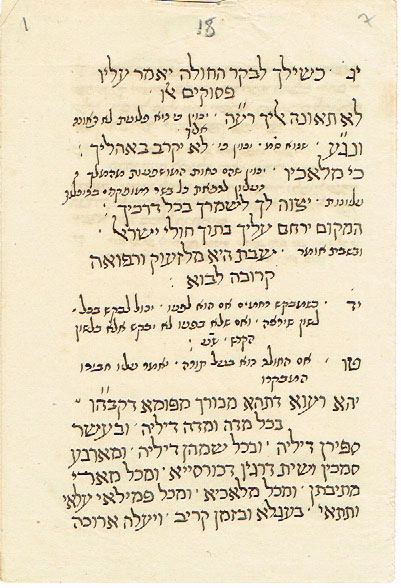 1 18 7
יג · כשילך לבקר החולה יאמר עליו
פסוקים אלו
לא תאונה אליך רעה · יכוין כי
אליך
ונגע · יכוין כי · לא יקרב באהליך :
כי מלאכיו · יכוין שהם כחות
עליונות · יצוה לך לישמרך בכל דרכיך :
המקום ירחם עליך בתוך חולי ישראל ·
ובשבת אומר · שבת היא מלזעוק ורפואה
קרובה לבוא :
יד · כשמבקש רחמים אם הוא לפניו · יכול לבקש בכל
לשון שירצה · ואם שלא בפניו לא יבקש אלא בלשון
הקדש ·
טו · אם החולה הוא בעל תורה · יאמר עליו חבירו
המבקרו
יהא רעוא דתהא מבורך מפומא דקב״הו
בכל מדה ומדה דיליה · ובעשר
ספירן דיליה · ובכל שמהן דיליה · ומארבע
סמכין ושית דרגין דכורסייא · ומכל מארי
מתיבתן · ומכל מלאכיא · ומכל פמליאי עלאי
ותתאי · בעגלא ובזמן קריב · ויעלה ארוכה